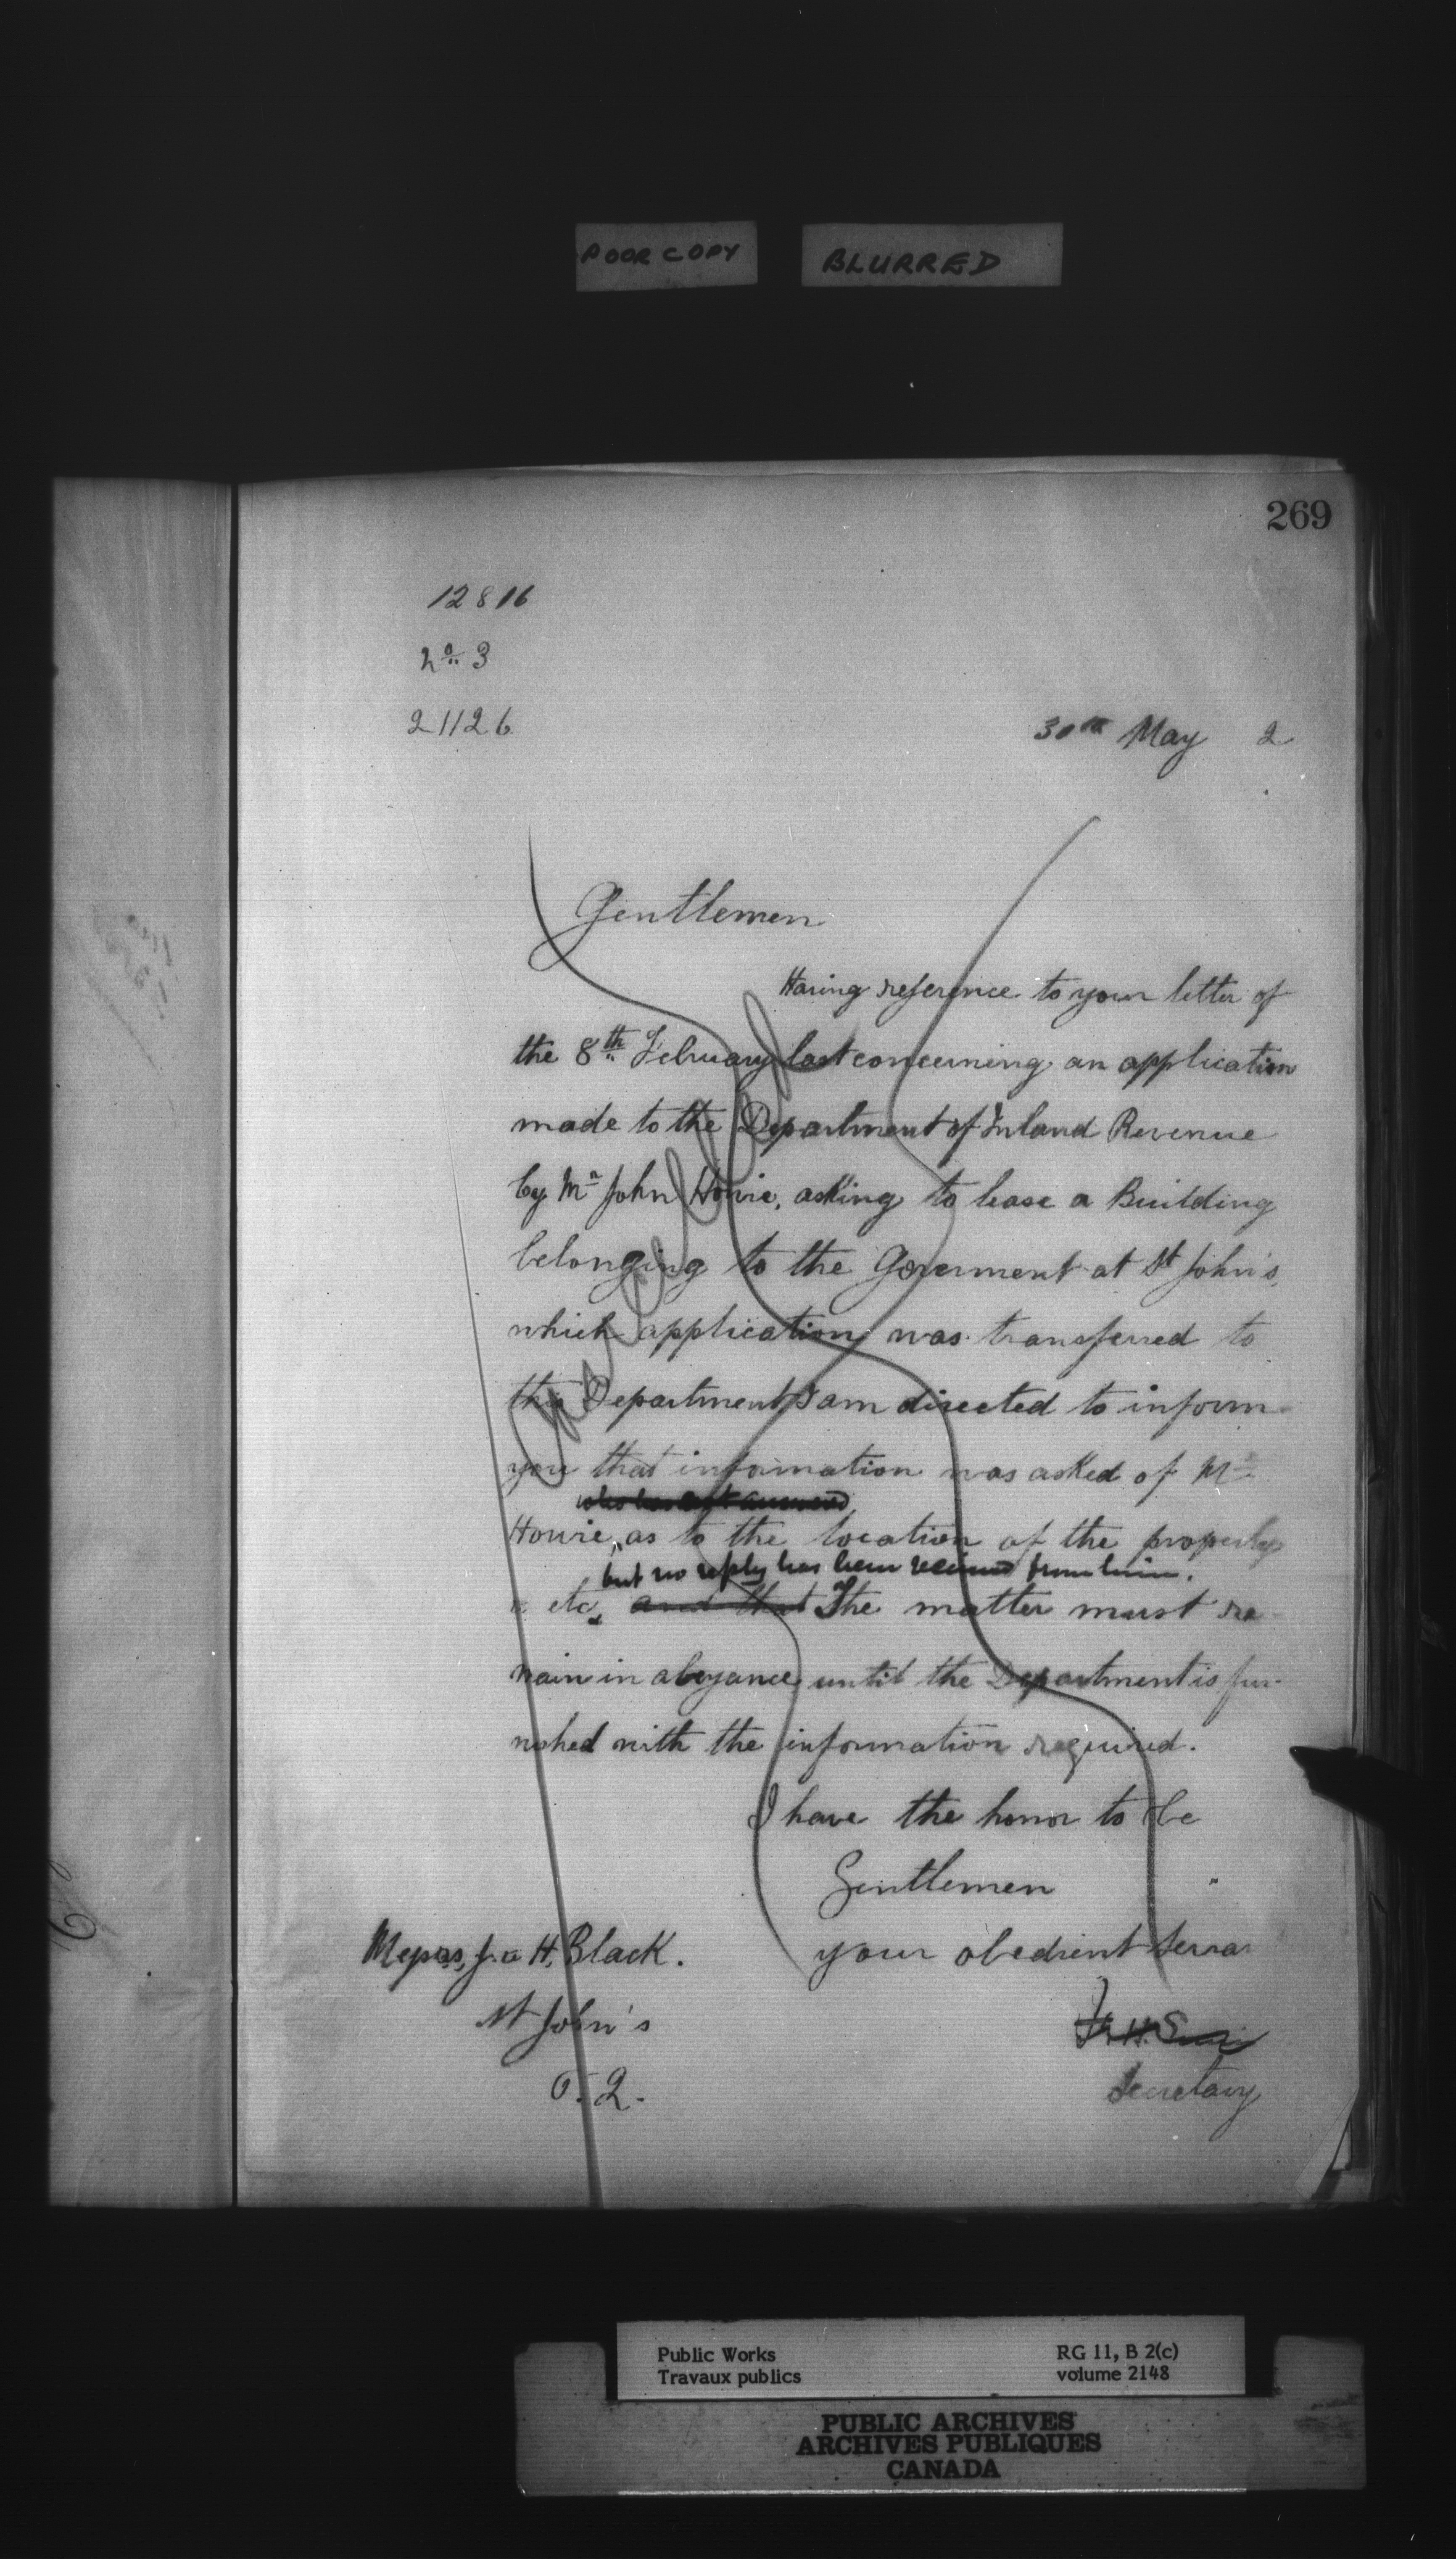 POOR COPY BLURRED
269
12816
No 3
21126
30th May 2
Gentlemen
Having reference to your letter of
the 8th February last concerning an application
made to the Department of Inland Revenue
by Mr John Howie, asking to lease a Building
belonging to the Goverment at St John's,
which application was transferred to
this Department, I am directed to inform
you that information was asked of Mr
who has not answered
Howie, as to the location of the property
but no reply has been received from him.
etc, and that The matter must re-
main in abeyance until the Department is fur-
nished with the information required.
I have the honor to be
Gentlemen
your obedient serva
Messrs, J. & H. Black.
St John's
P. Q.
Secretary
Public Works
Travaux publics
RG 11, B 2(c)
volume 2148
PUBLIC ARCHIVES
ARCHIVES PUBLIQUES
CANADA